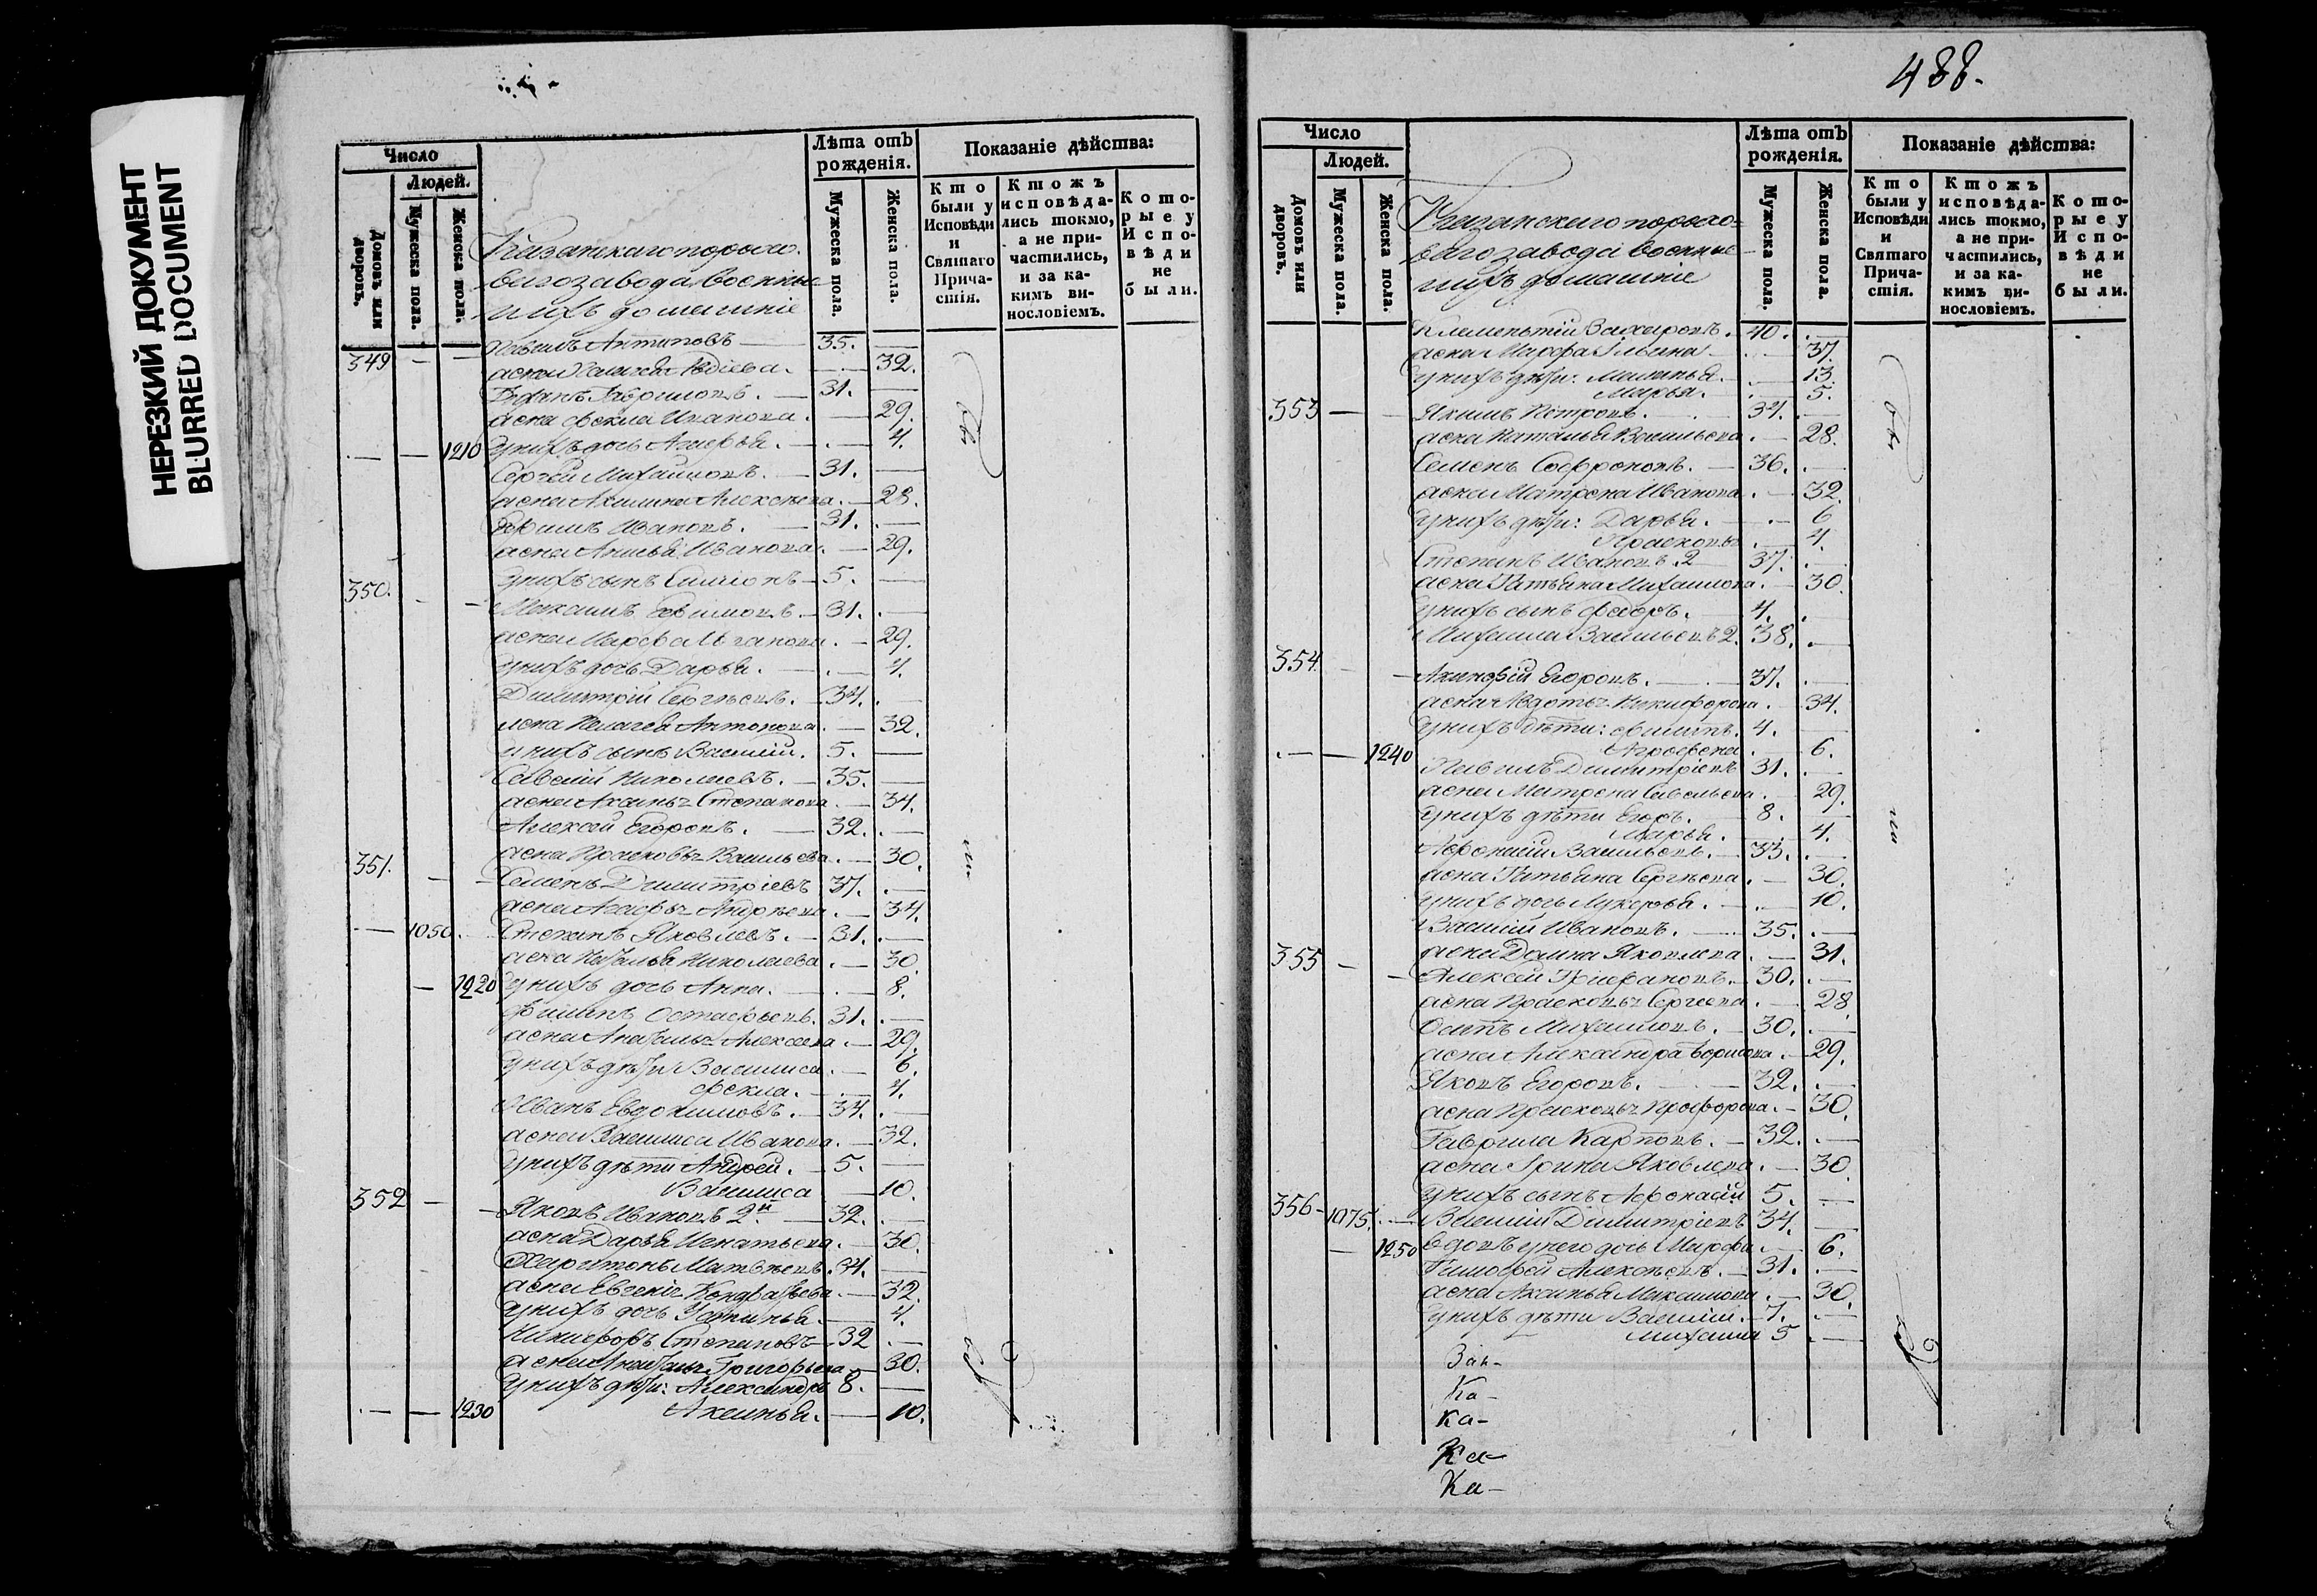 НЕРЕЗКИЙ ДОКУМЕНТ
BLURRED DOCUMENT
Число
Людей.
Домовъ или дворовъ.
Мужеска пола.
Женска пола.
Казанскаго порохо
ваго завода военные
и ихъ домашніе
Лѣта отъ
рожденія.
Мужеска пола.
Женска пола.
Показаніе дѣйства:
Кто
были у
Исповѣди
и
Святаго
Прича-
стія.
Ктожъ
исповѣда-
лись токмо,
а не при-
частились,
и за ка-
кимъ ви-
нословіемъ.
Кото-
рые у
Испо-
вѣди
не
были.
Антиповъ 35.
349 жена Авдіева. 32.
31.
жена Фекла Иванова. 29.
1210 у нихъ дочь 4.
Сергѣй Михайловъ. 31.
жена Акилина Алексѣева. 28.
Ефимъ Ивановъ. 31.
жена Анисья Иванова. 29.
350. у нихъ сынъ Симіонъ 5.
Максимъ Ефимовъ. 31.
жена Марфа 29.
у нихъ дочь Дарья. 4.
Димитрій Сергѣевъ. 34.
жена Пелагея Антонова. 32.
у нихъ сынъ Василій. 5.
Савелій Николаевъ. 35.
жена Аксинья Степанова. 34.
Алексѣй Егоровъ. 32.
351. жена Прасковья Васильева. 30.
Семенъ Димитріевъ 37.
жена Агафья Андрѣева. 34.
1050. Степанъ Яковлевъ. 31.
жена Наталья Николаева. 30.
1220 у нихъ дочь Анна. 8.
Филипъ Остафьевъ. 31.
жена Наталья Алексѣева. 29.
у нихъ дѣти Василиса. 6.
Фекла. 4.
Иванъ Евдокимовъ. 34.
жена Василиса Иванова. 32.
у нихъ дѣти Андрей. 5.
Василиса 10.
352 Яковъ Ивановъ 2й. 32.
жена Дарья Игнатьева. 30.
Харитонъ Матвѣевъ. 34.
жена Евгенія Кондратьева. 32.
у нихъ дочь Устинья. 4.
Никифоръ Степановъ 32
жена Наталья Григорьева 30.
у нихъ дѣти: Александръ 8.
1230 Аксинья. 10.
488.
Число
Людей.
Домовъ или дворовъ.
Мужеска пола.
Женска пола.
Казанскаго порохо-
ваго завода военные
и ихъ домашніе
Лѣта отъ
рожденія.
Мужеска пола.
Женска пола.
Показаніе дѣйства:
Кто
были у
Исповѣди
и
Святаго
Прича-
стія.
Ктожъ
исповѣда-
лись токмо,
а не при-
частились,
и за ка-
кимъ ви-
нословіемъ.
Кото-
рые у
Испо-
вѣди
не
были.
Клементій Захаровъ. 40.
жена Марфа Ильина 37.
у нихъ дѣти: Меланья. 13.
Марья. 5.
353 Якимъ Петровъ. 34.
жена Наталья Васильева. 28.
Семенъ Софроновъ. 36.
жена Матрена Иванова. 32.
у нихъ дѣти: Дарья. 6
Прасковья 4.
Степанъ Ивановъ. 2 37.
жена Татьяна Михайлова. 30.
у нихъ сынъ Федоръ. 4.
Михаила Васильевъ 2. 38.
354. Егоровъ. 37.
жена Авдотья Никифорова. 34.
у нихъ дѣти: Филипъ. 4.
1240 Агрофена 6.
Павелъ Димитріевъ 31.
жена Матрена Савельева. 29.
у нихъ дѣти Егоръ. 8.
Марья. 4.
Афонасій Васильевъ. 33.
жена Татьяна Сергѣева. 30.
у нихъ дочь Лукерья. 10.
Василій Ивановъ. 35.
355 жена Домна Яковлева. 31.
Алексѣй Трифановъ. 30.
жена Прасковья Сергѣева. 28
Осипъ Михайловъ. 30.
жена Александра Борисова. 29.
Яковъ Егоровъ. 32.
жена Прасковья Профорова. 30.
Гаврила Карповъ. 32.
жена Ирина Яковлева. 30.
у нихъ сынъ Афонасій 5.
356 1075. Василій Димитріевъ 34.
1250 вдовъ у него дочь Марфа. 6.
Тимофей Алексѣевъ. 31.
жена Аксинья Максимова. 30.
у нихъ дѣти Василій. 7.
Михаила 5
Зак-
Ка-
Ка-
Ка-
Ка-